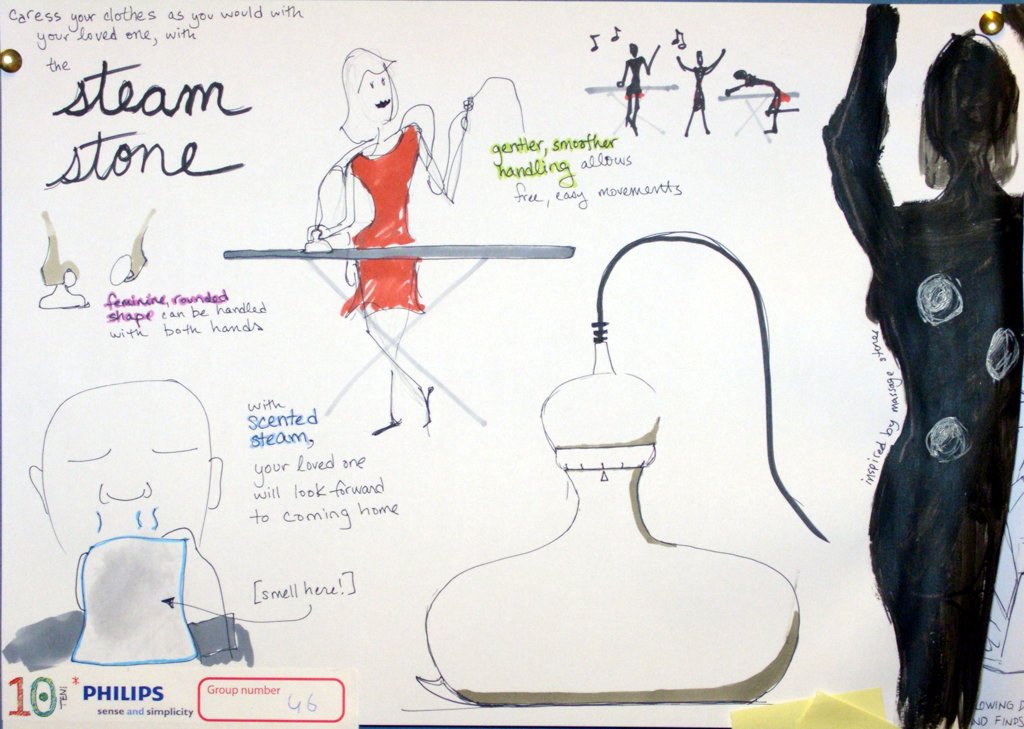 caress your clothes as you would with
your loved one, with
the
steam
stone
gentler, smoother
handling allows
free, easy movements
feminine, rounded
shape can be handled
with both hands
with
scented
steam,
your loved one
will look forward
to coming home
[smell here!]
inspired by massage stones
10
TEN!
*
PHILIPS
sense and simplicity
Group number
46
LOWING
ND FINDS